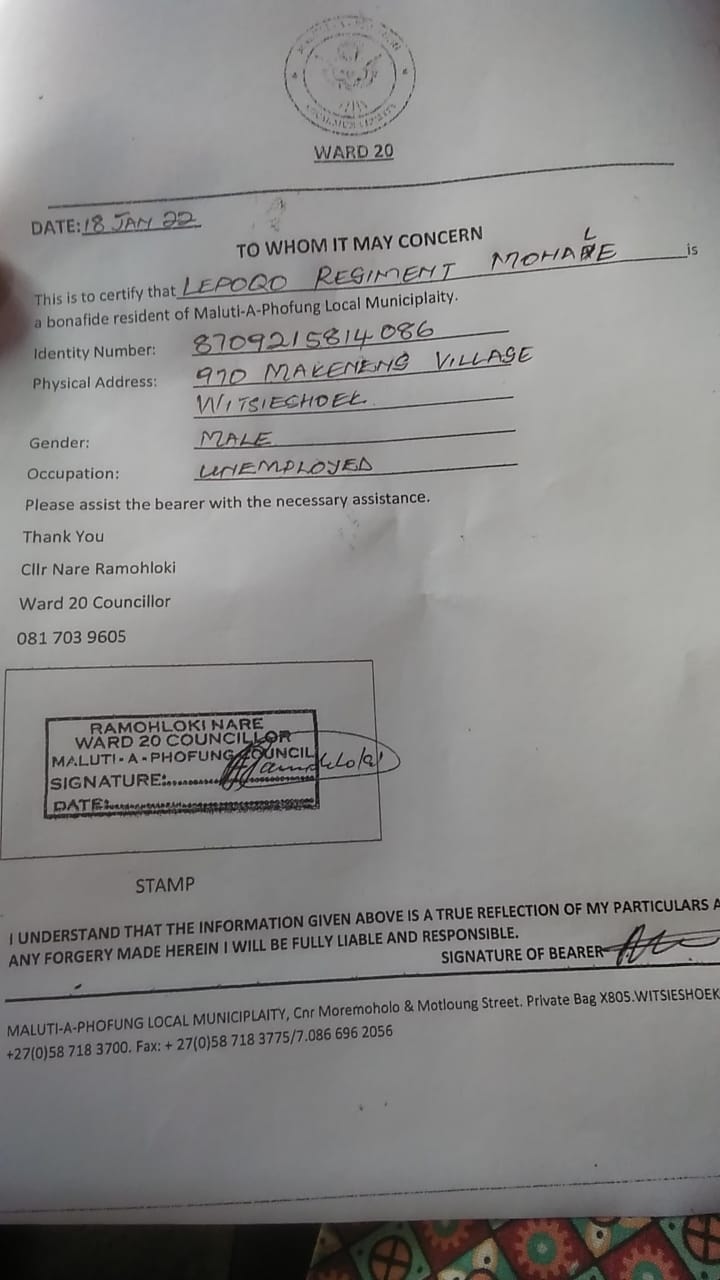 WARD 20
DATE: 18 JAN 22
TO WHOM IT MAY CONCERN
This is to certify that LEPOQO REGIMENT MOHALE is
a bonafide resident of Maluti-A-Phofung Local Municiplaity.
Identity Number: 8709215814086
Physical Address: 970 MAKENENG VILLAGE
WITSIESHOEK
Gender: MALE
Occupation: UNEMPLOYED
Please assist the bearer with the necessary assistance.
Thank You
Cllr Nare Ramohloki
Ward 20 Councillor
081 703 9605
RAMOHLOKI NARE
WARD 20 COUNCILLOR
MALUTI-A-PHOFUNG COUNCIL
SIGNATURE:
DATE:
STAMP
I UNDERSTAND THAT THE INFORMATION GIVEN ABOVE IS A TRUE REFLECTION OF MY PARTICULARS A
ANY FORGERY MADE HEREIN I WILL BE FULLY LIABLE AND RESPONSIBLE.
SIGNATURE OF BEARER
MALUTI-A-PHOFUNG LOCAL MUNICIPLAITY, Cnr Moremoholo & Motloung Street. Private Bag X805.WITSIESHOEK
+27(0)58 718 3700. Fax: + 27(0)58 718 3775/7.086 696 2056